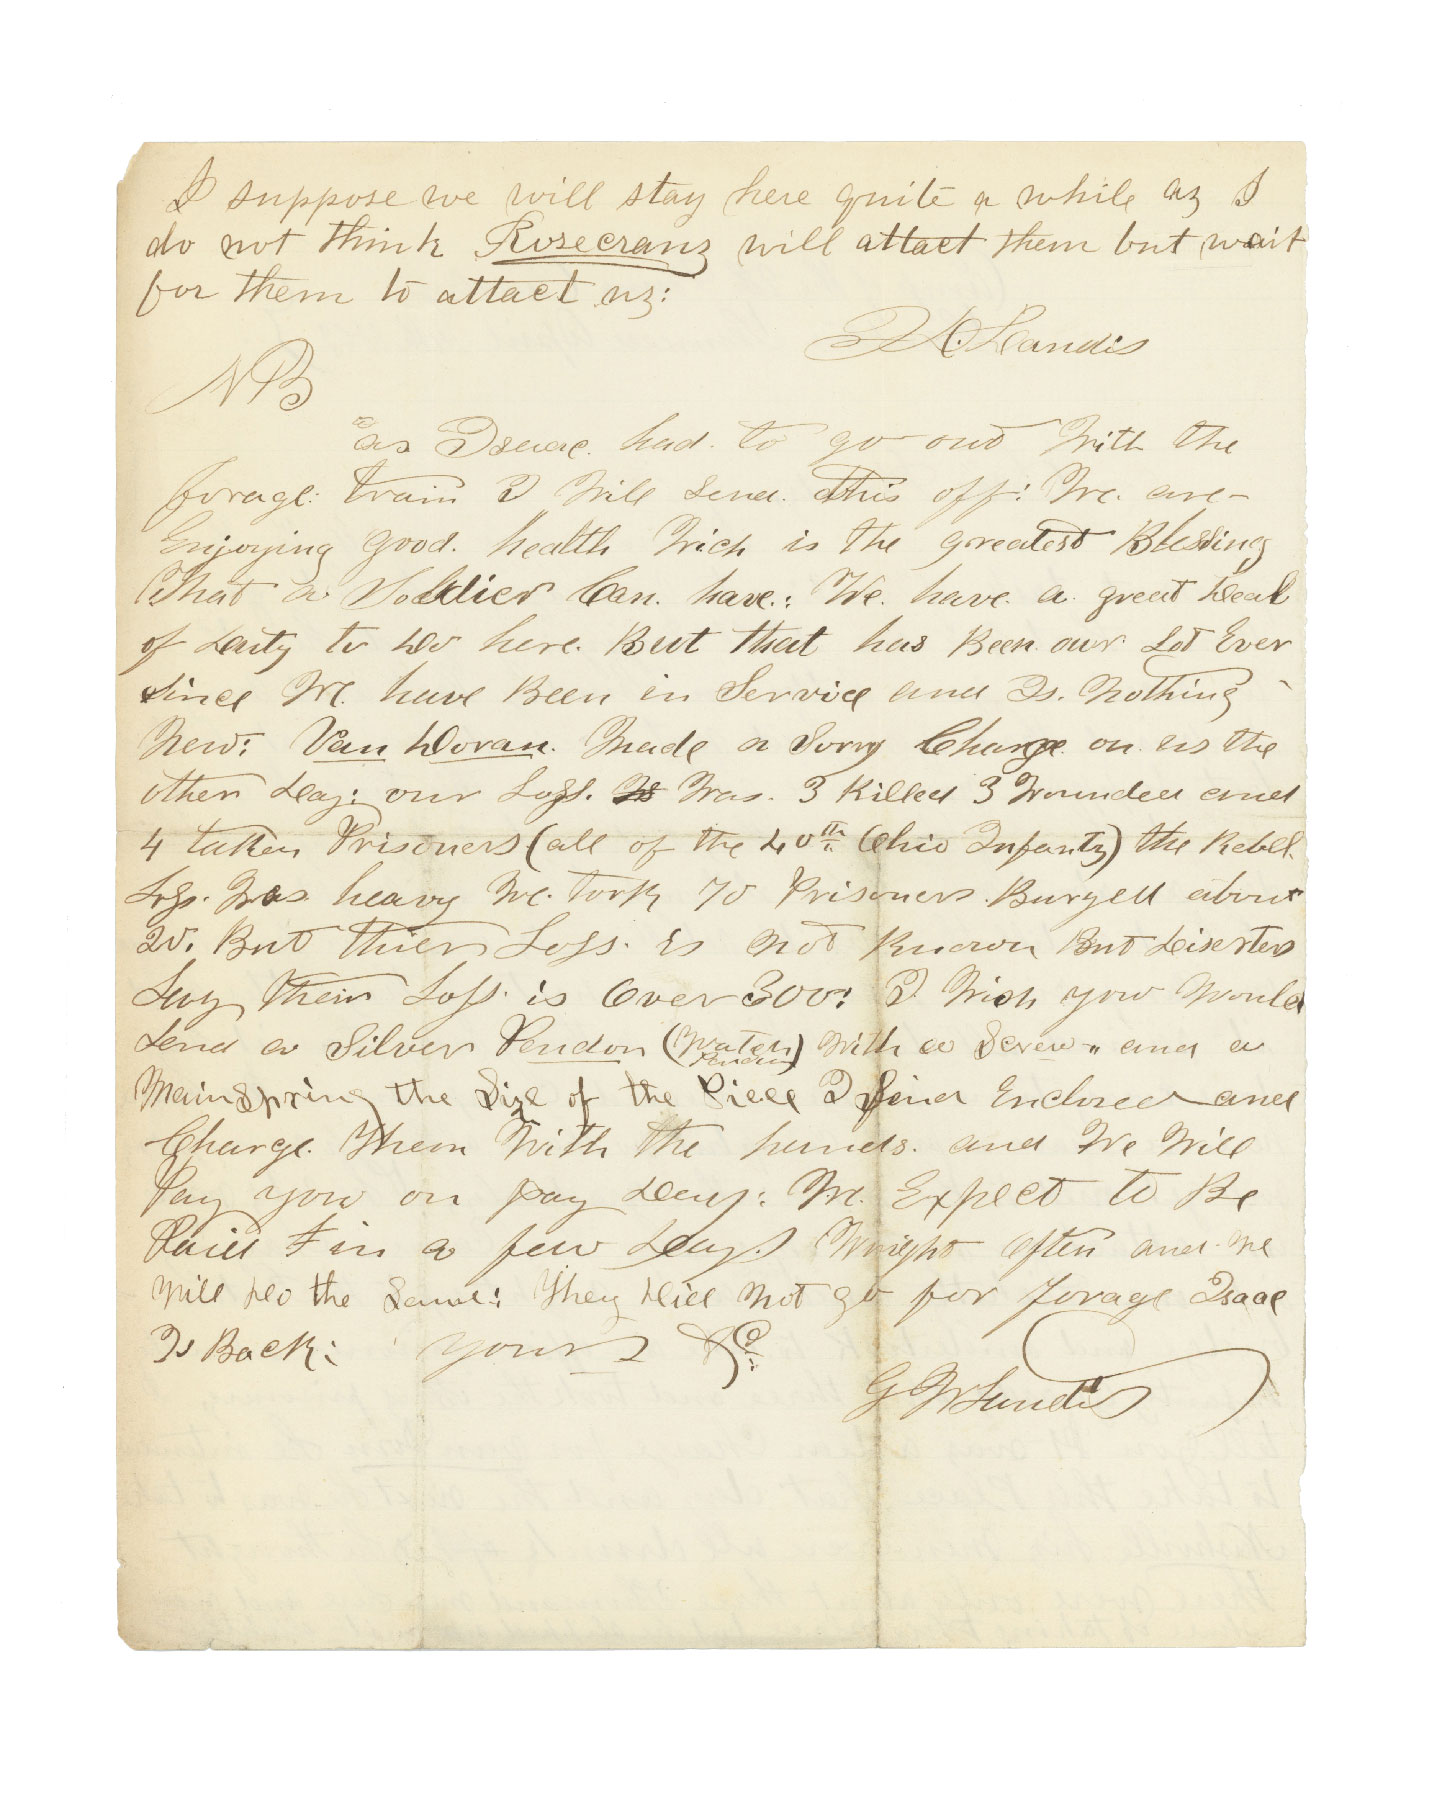 I suppose we will stay here quite a while as I
do not think Rosecrans will attact them but wait
for them to attact us:
I. A. Landis
NB
as Isaac. had. to go out With the
forage. train I Will Send. this off: We. are
Enjoying good. health Wich is the greatest Blessing
That a Soldier Can. have.: We. have. a. great Deal
of Duty to Do here. But that has Been our Lot Ever
Since We. have Been in Service and Is. Nothing
New: Van Doran. Made a Sorry Charge on us the
other Day: our Loss. Was. 3 Killed 3 Wounded and
4 taken Prisoners (all of the 40th Ohio Infanty) the Rebel.
Loss. Was heavy We. took 70 Prisoners. Buryed about
20. But thier Loss. is not Known But Diserters
Say their Loss. is Over 300: I Wish you Would
Send a Silver Pendon (Watch) With a Screw " and a
Mainspring the Size of the Piece I Send Enclosed and
Charge. Them With the hands. and We Will
Pay you on pay Day: We. Expect to Be
Paid in a few Days Wright often and We
Will Do the Same: They Did Not go for forage Isaac
Is Back: Yours &C
G W Landis